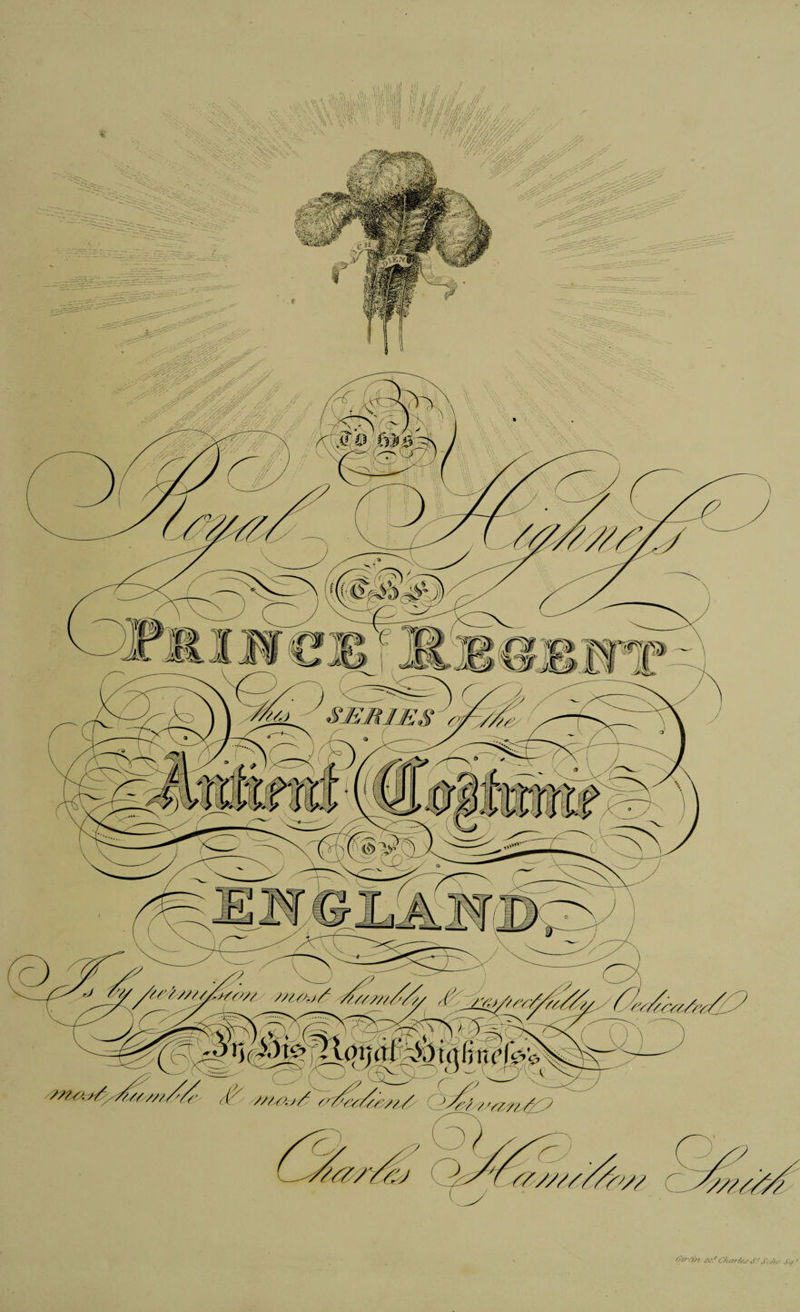 ICH
DIEN
To His
Royal Highneſs
THE
PRINCE REGENT
This SERIES of the
Antient Costume
OF
ENGLAND,
Is by permission most humbly & respectfully Dedicated
By His Royal Highneſs's
most humble & most obedient Servant
Charles Hamilton Smith
Girtin sct. Charles St. Soho Sqr.